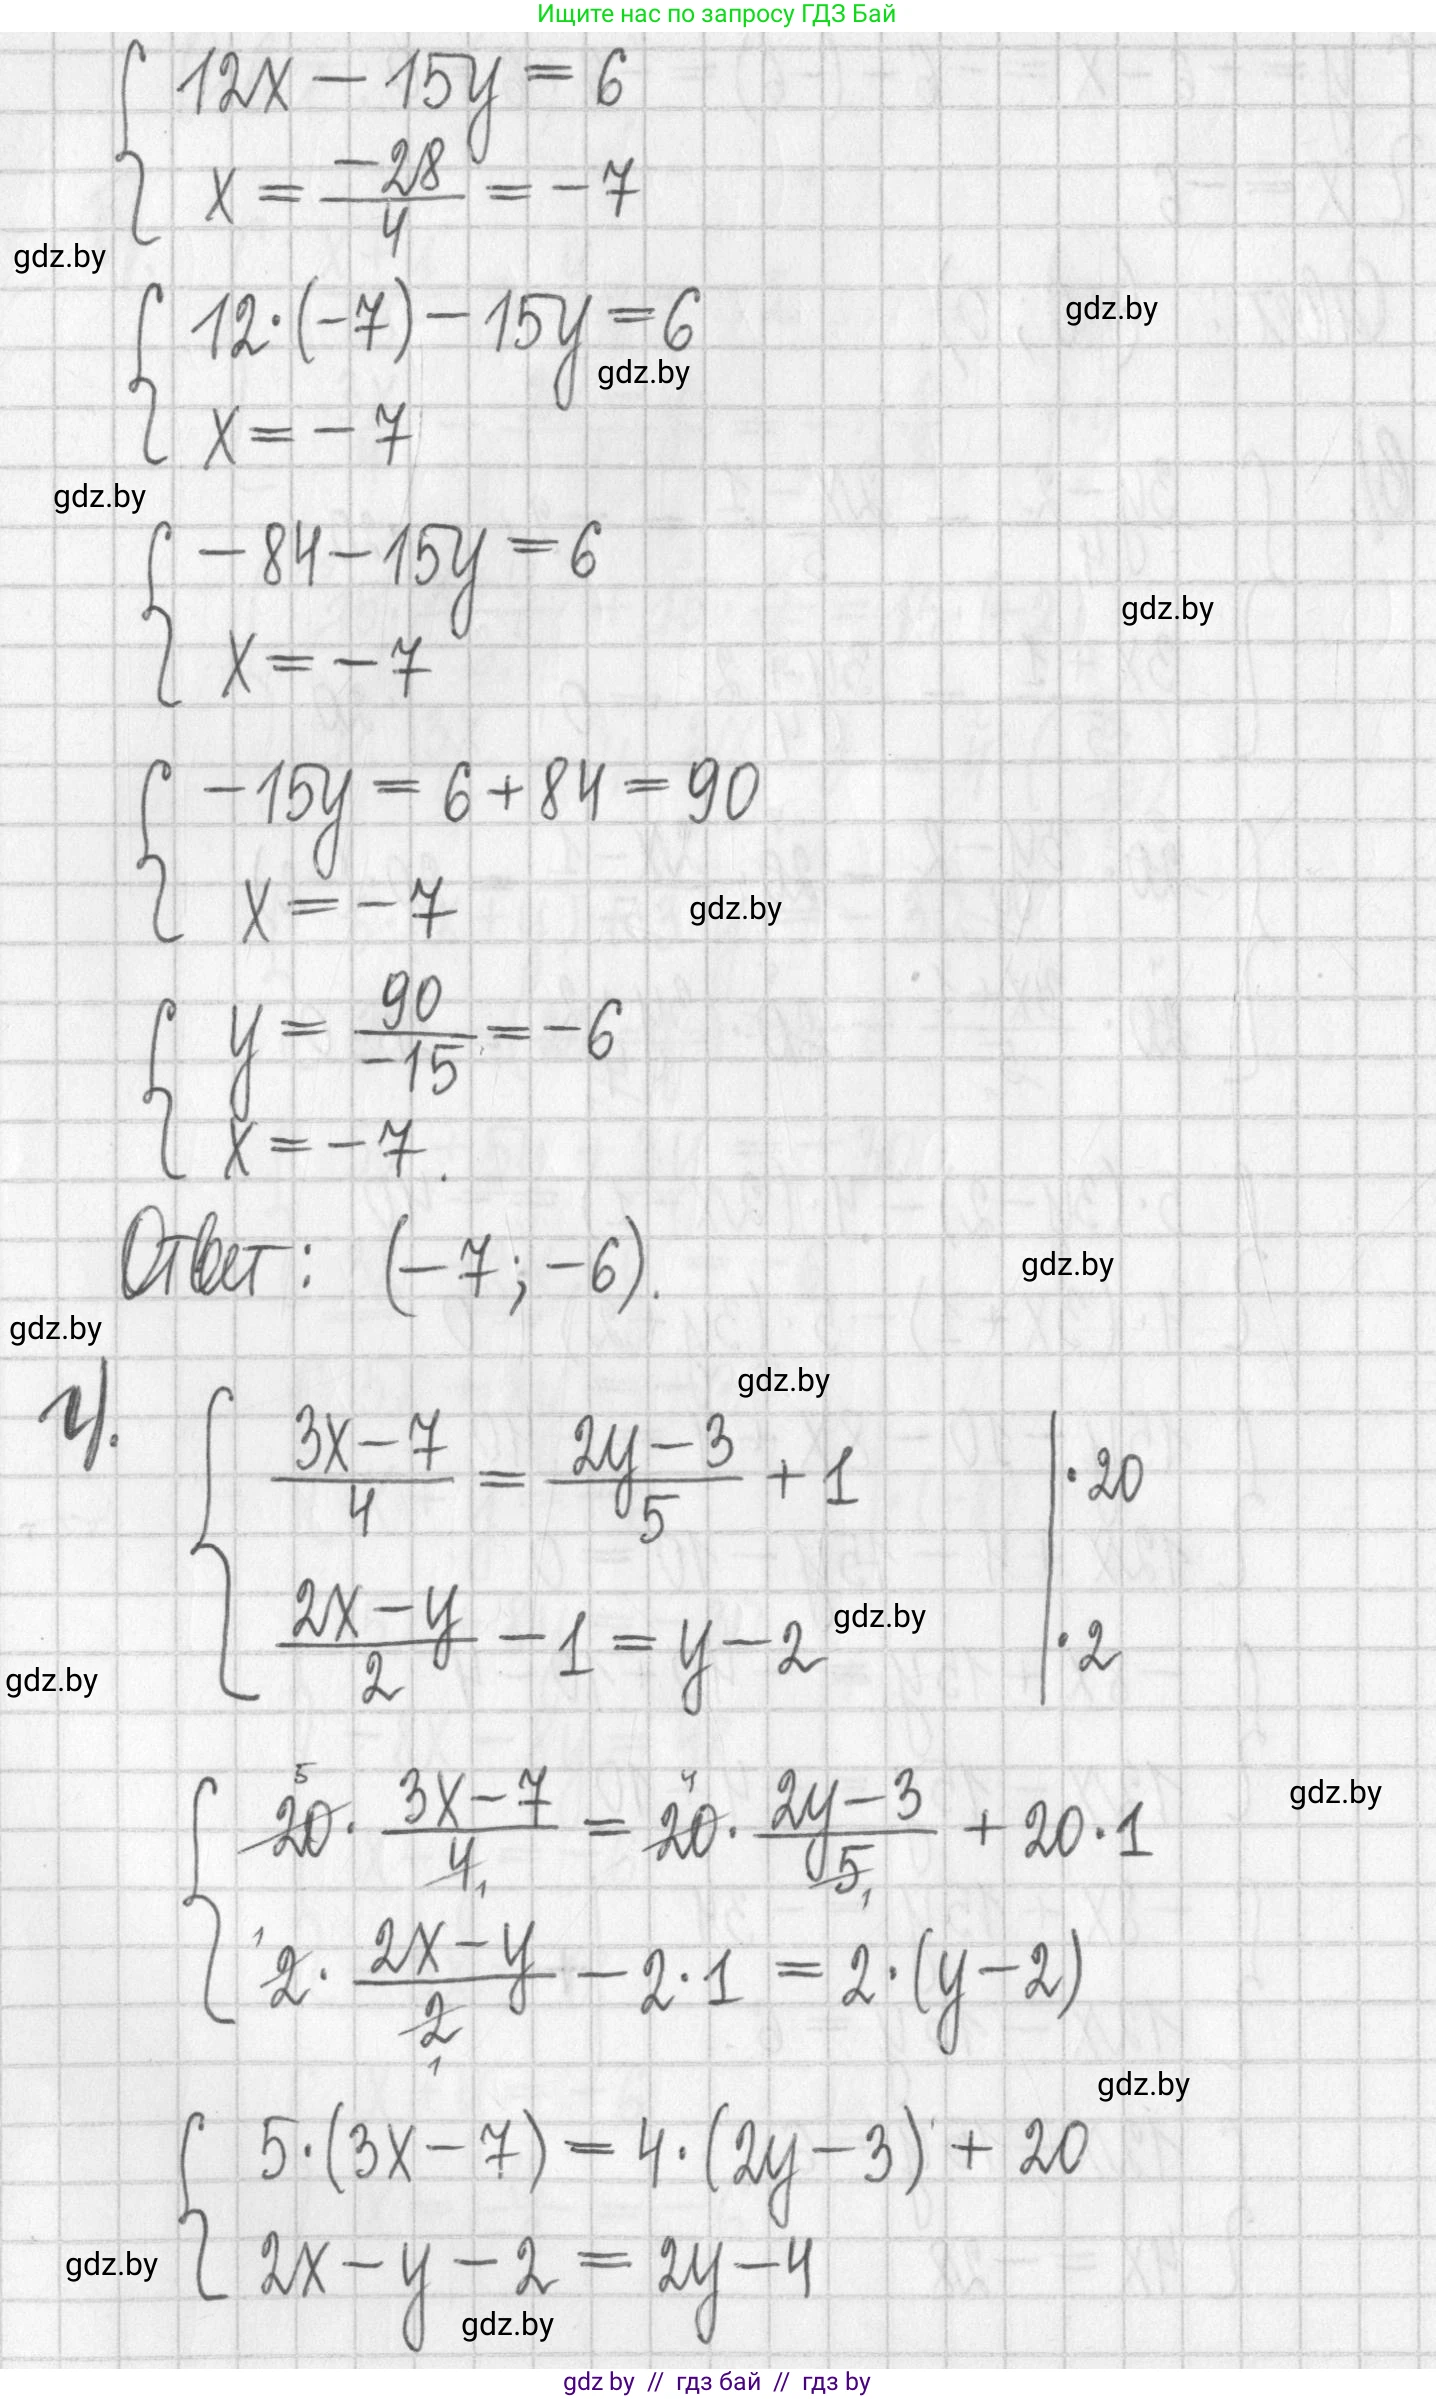 Ищите нас по запросу ГДЗ Бай
12x - 15y = 6
x = -28/4 = -7
gdz.by
12·(-7) - 15y = 6
gdz.by
gdz.by
x = -7
gdz.by
-84 - 15y = 6
gdz.by
x = -7
-15y = 6 + 84 = 90
x = -7
gdz.by
y = 90/-15 = -6
x = -7.
Ответ: (-7; -6).
gdz.by
gdz.by
г).
gdz.by
(3x - 7)/4 = (2y - 3)/5 + 1 | ·20
(2x - y)/2 - 1 = y - 2 | ·2
gdz.by
gdz.by
20⁵ · (3x - 7)/4₁ = 20⁴ · (2y - 3)/5₁ + 20·1
gdz.by
¹2 · (2x - y)/2₁ - 2·1 = 2·(y - 2)
gdz.by
5·(3x - 7) = 4·(2y - 3) + 20
2x - y - 2 = 2y - 4
gdz.by
gdz.by
gdz by // гдз бай // гдз by